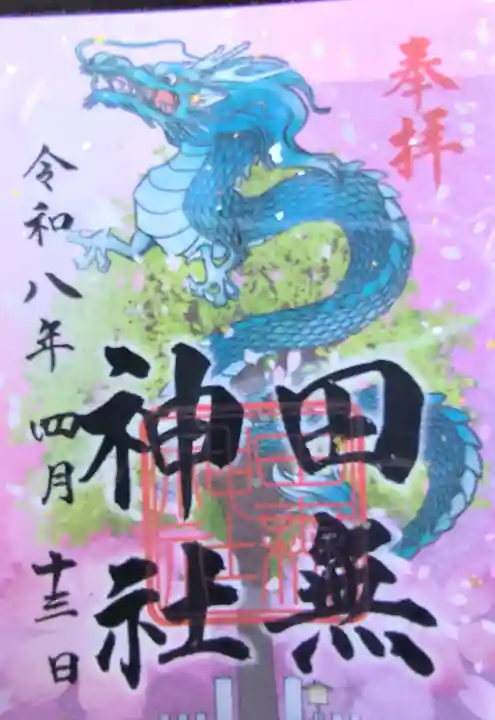 奉拝
田無
神社
令和八年 四月 十三日